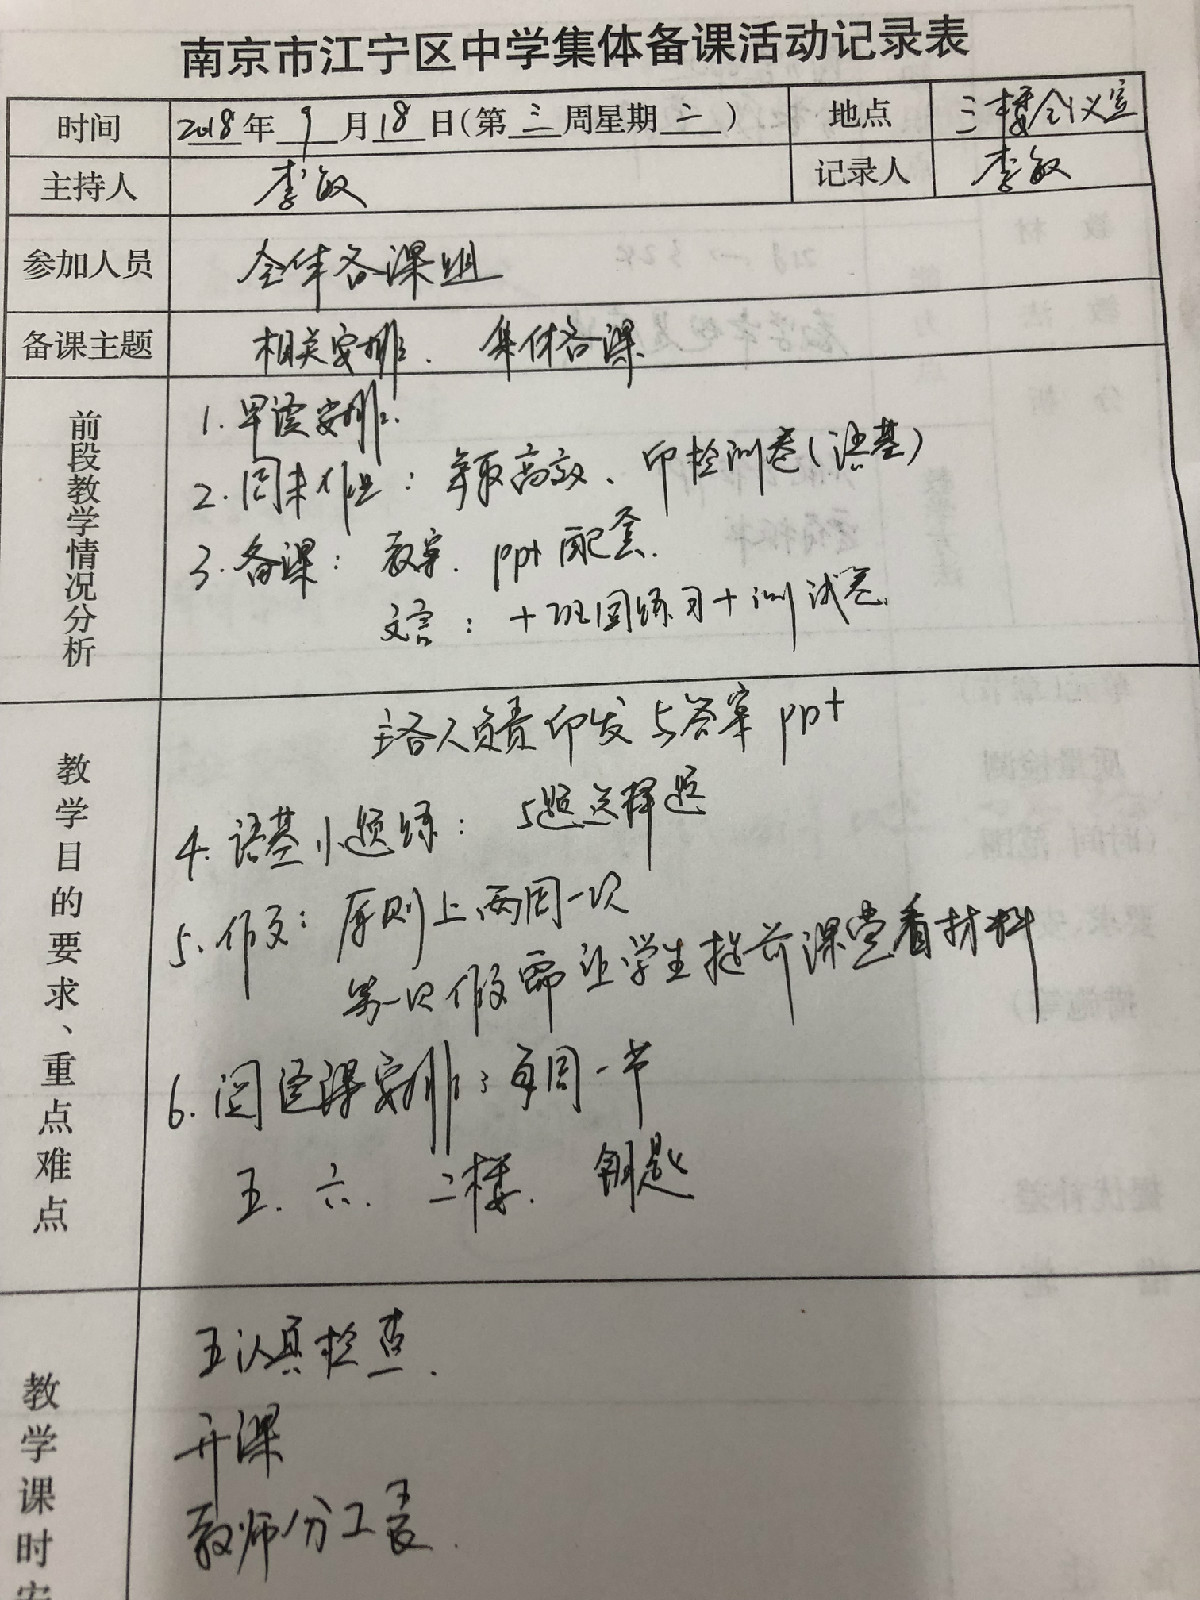 南京市江宁区中学集体备课活动记录表
时间 2018年9月18日(第三周星期二) 地点 三楼会议室
主持人 李敏 记录人 李敏
参加人员 全体备课组
备课主题 相关安排、集体备课
前段教学情况分析
1.早读安排.
2.周末作业: 高效、印检测卷(语基)
3.备课: 教案、ppt配套.
文言: +巩固练习+测试卷
教学目的要求、重点难点
主备人负责印发与答案ppt
4.语基小题练: 5题选择题
5.作文: 原则上两周一次
第一次作文需让学生提前课堂看材料
6.阅览课安排: 每周一节
五.六. 二楼. 钥匙
教学课时安
认真检查.
开课
教师分工表.